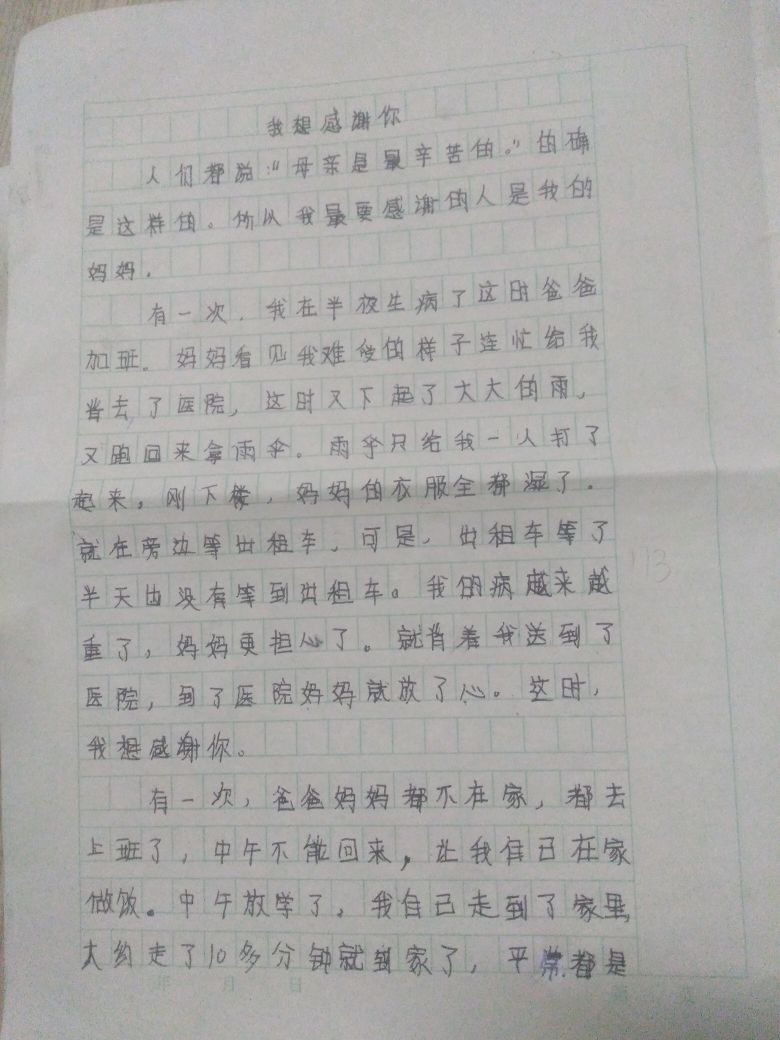 我想感谢你
人们都说:“母亲是最辛苦的。”的确
是这样的。所以我最要感谢的人是我的
妈妈.
有一次,我在半夜生病了这时爸爸
加班。妈妈看见我难受的样子连忙给我
背去了医院,这时又下起了大大的雨,
又跑回来拿雨伞。雨伞只给我一人打了
起来,刚下楼,妈妈的衣服全都湿了.
就在旁边等出租车,可是,出租车等了
半天也没有等到出租车。我的病越来越
重了,妈妈更担心了。就背着我送到了
医院,到了医院妈妈就放了心。这时,
我想感谢你。
有一次,爸爸妈妈都不在家,都去
上班了,中午不能回来,让我自己在家
做饭。中午放学了,我自己走到了家里,
大约走了10多分钟就到家了,平常都是
年 月 日